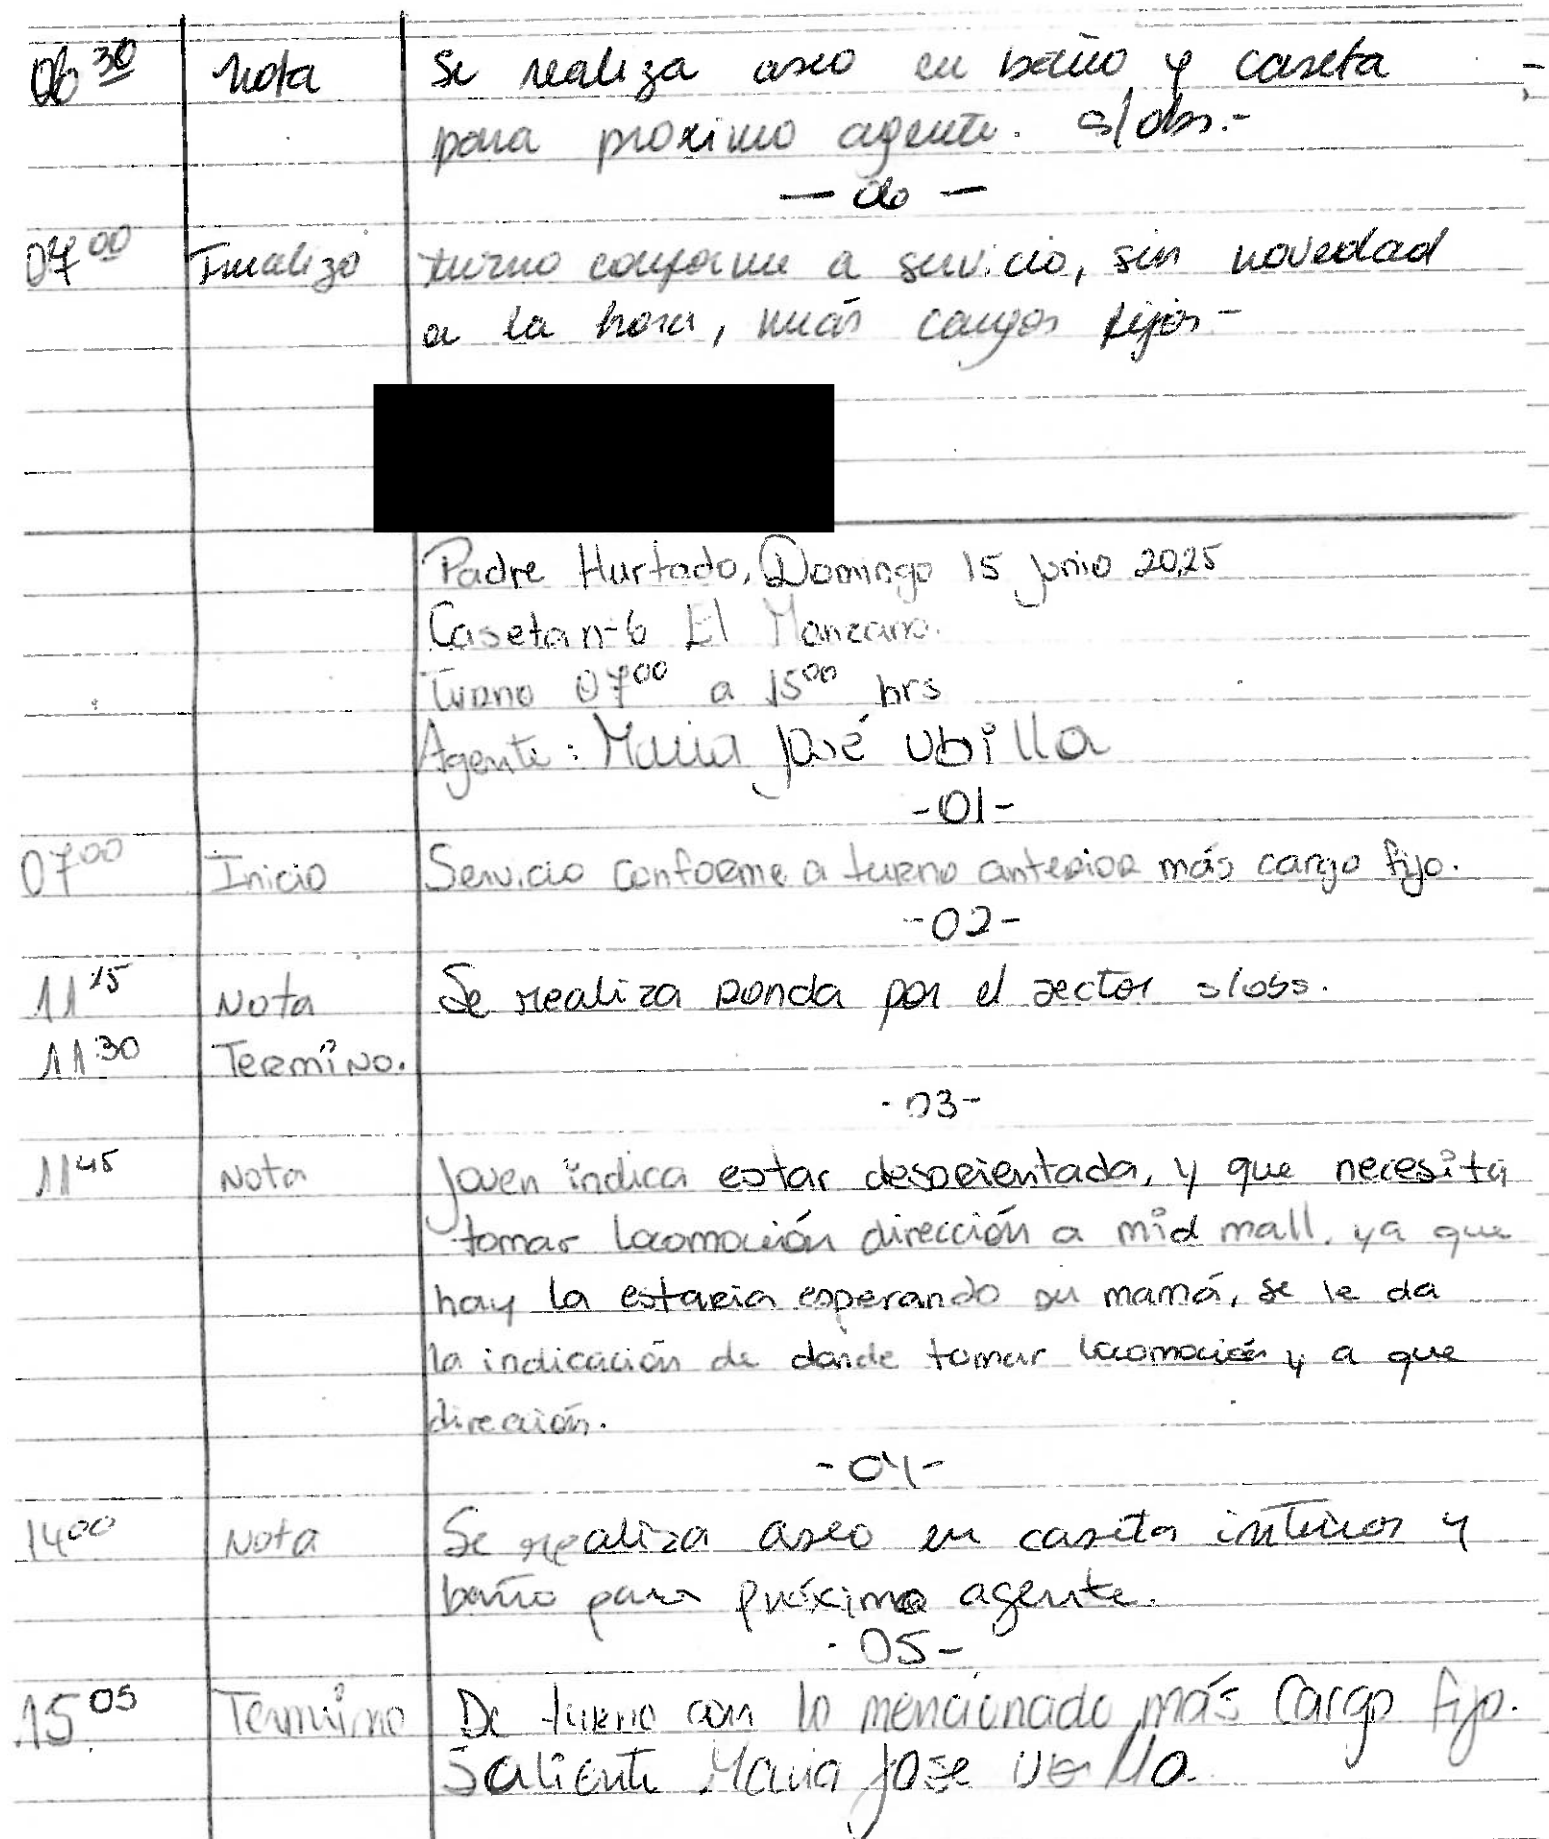 06 30 Nota Se realiza aseo en baño y caseta
para proximo agente. s/obs.-
— 06 —
07 00 Finalizo turno conforme a servicio, sin novedad
a la hora, más cargos fijos-
Padre Hurtado, Domingo 15 junio 2025
Caseta n-6 El Manzano.
Turno 07 00 a 15 00 hrs
Agente: Maria José Ubilla
-01-
07 00 Inicio Servicio conforme a turno anterior más cargo fijo.
-02-
11 15 Nota Se realiza ronda por el sector s/obs.
11 30 Termino.
-03-
11 45 Nota Joven indica estar desorientada, y que necesita
tomar locomoción dirección a mid mall, ya que
hay la estaria esperando su mamá, se le da
la indicación de donde tomar locomoción y a que
dirección.
-04-
14 00 Nota Se realiza aseo en caseta interior y
baño para próximo agente.
-05-
15 05 Termino De turno con lo mencionado, más Cargo fijo.
Saliente Maria Jose Ubilla